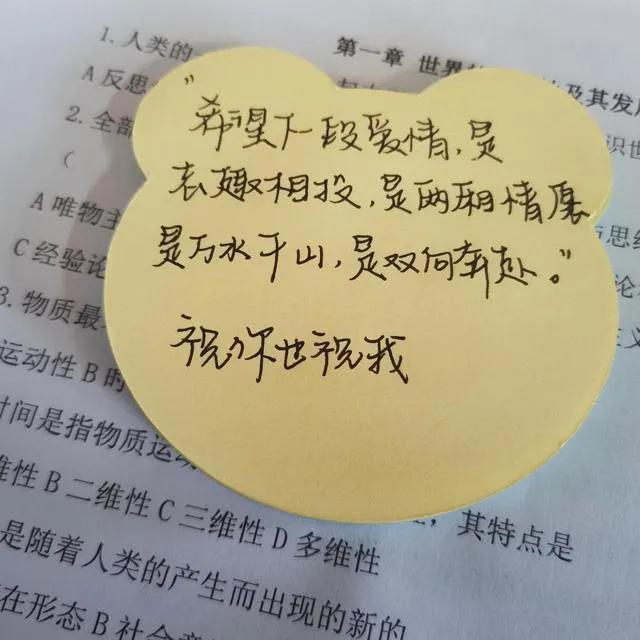 第一章 世界
及其发
1. 人类的
A 反思
2. 全部
识世
（
A 唯物主
思
C 经验论
论
3. 物质最
义
运动性 B 的
时间是指物质运
，其特点是
维性 B 二维性 C 三维性 D 多维性
是随着人类的产生而出现的新的
在形态 B 社会
"希望下一段爱情,是
志趣相投,是两厢情愿
是万水千山,是双向奔赴。"
祝你也祝我